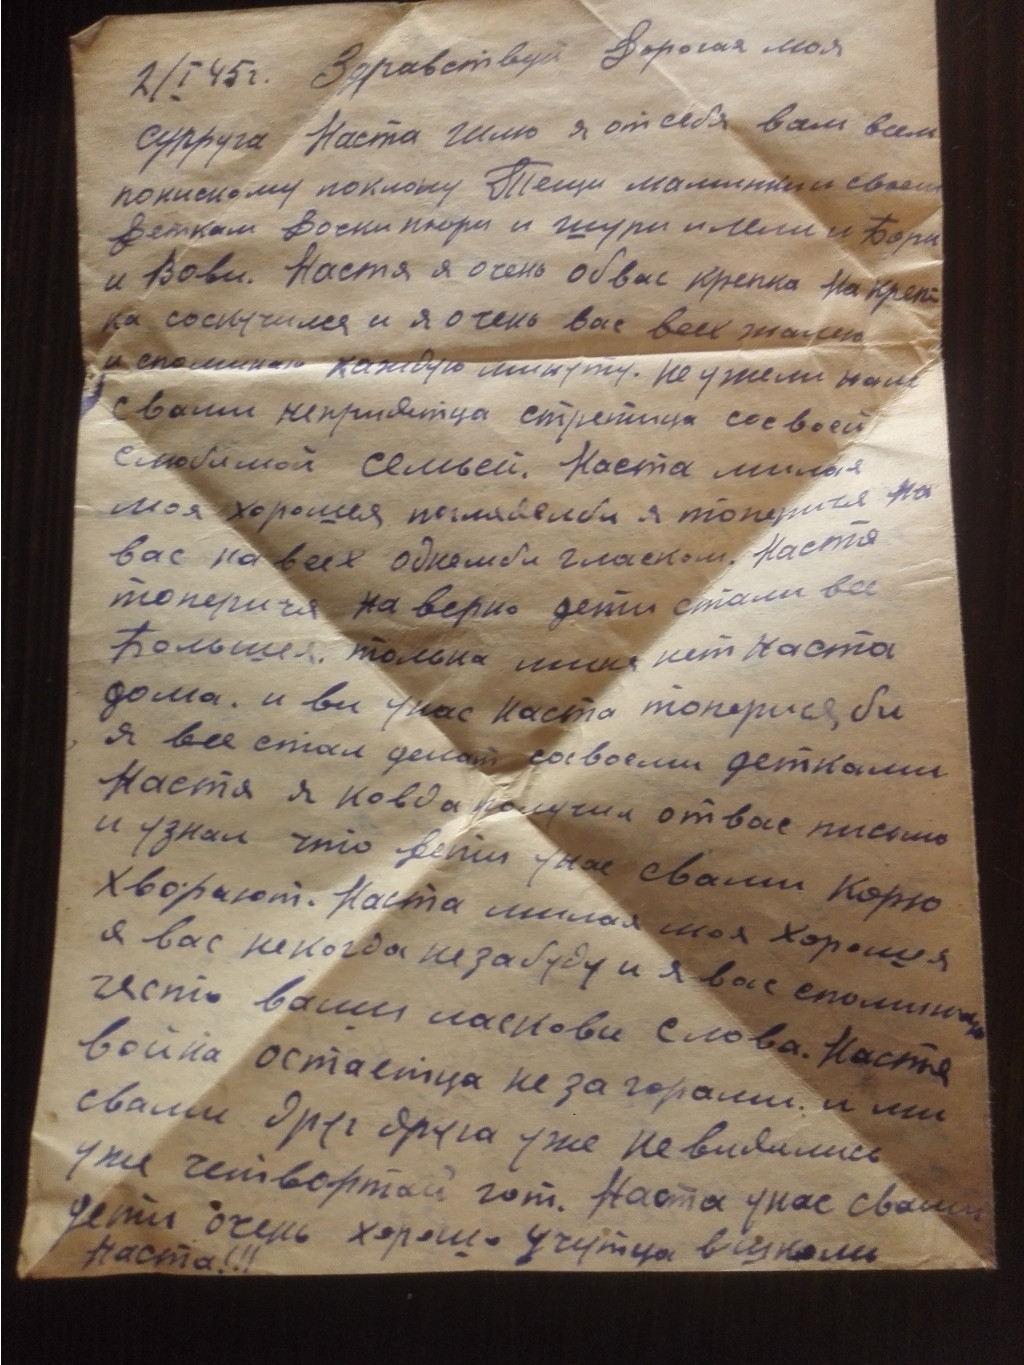 2/I 45г. Здравствуй Дорогая моя
супруга Наста шлю я отсебя вам всем
понискому поклону Тещи маминки и своем
Деткам Дочки нюри и шури и Мели и Бори
и Вови. Настя я очень обвас крепка На крепка
ка соскучился и я очень вас всех жалею
и споминаю каждую минуту. неужели нам
свами непридетца стретица сосвоей
слюбимой семьей. Наста милая
моя хорошея погляделби я топеричя На
вас на всех однемби гласком. Настя
топеричя На верно дети стали все
Большея. толька миня нет Наста
дома. и ви унас Наста топеричя би
я все стал делат сосвоеми детками
Настя я ковда получил отвас письмо
и узнал что дети унас свами Корю
Хворают. Наста милая моя Хорошея
я вас некогда незабуду и я вас споминаю
често ваши ласкови слова. Настя
война остаетца незагорами. и ми
свами друг друга уже невидялись
уже четвортай гот. Наста унас свами
дети очень хорошо учутца вшколи
Наста!!!